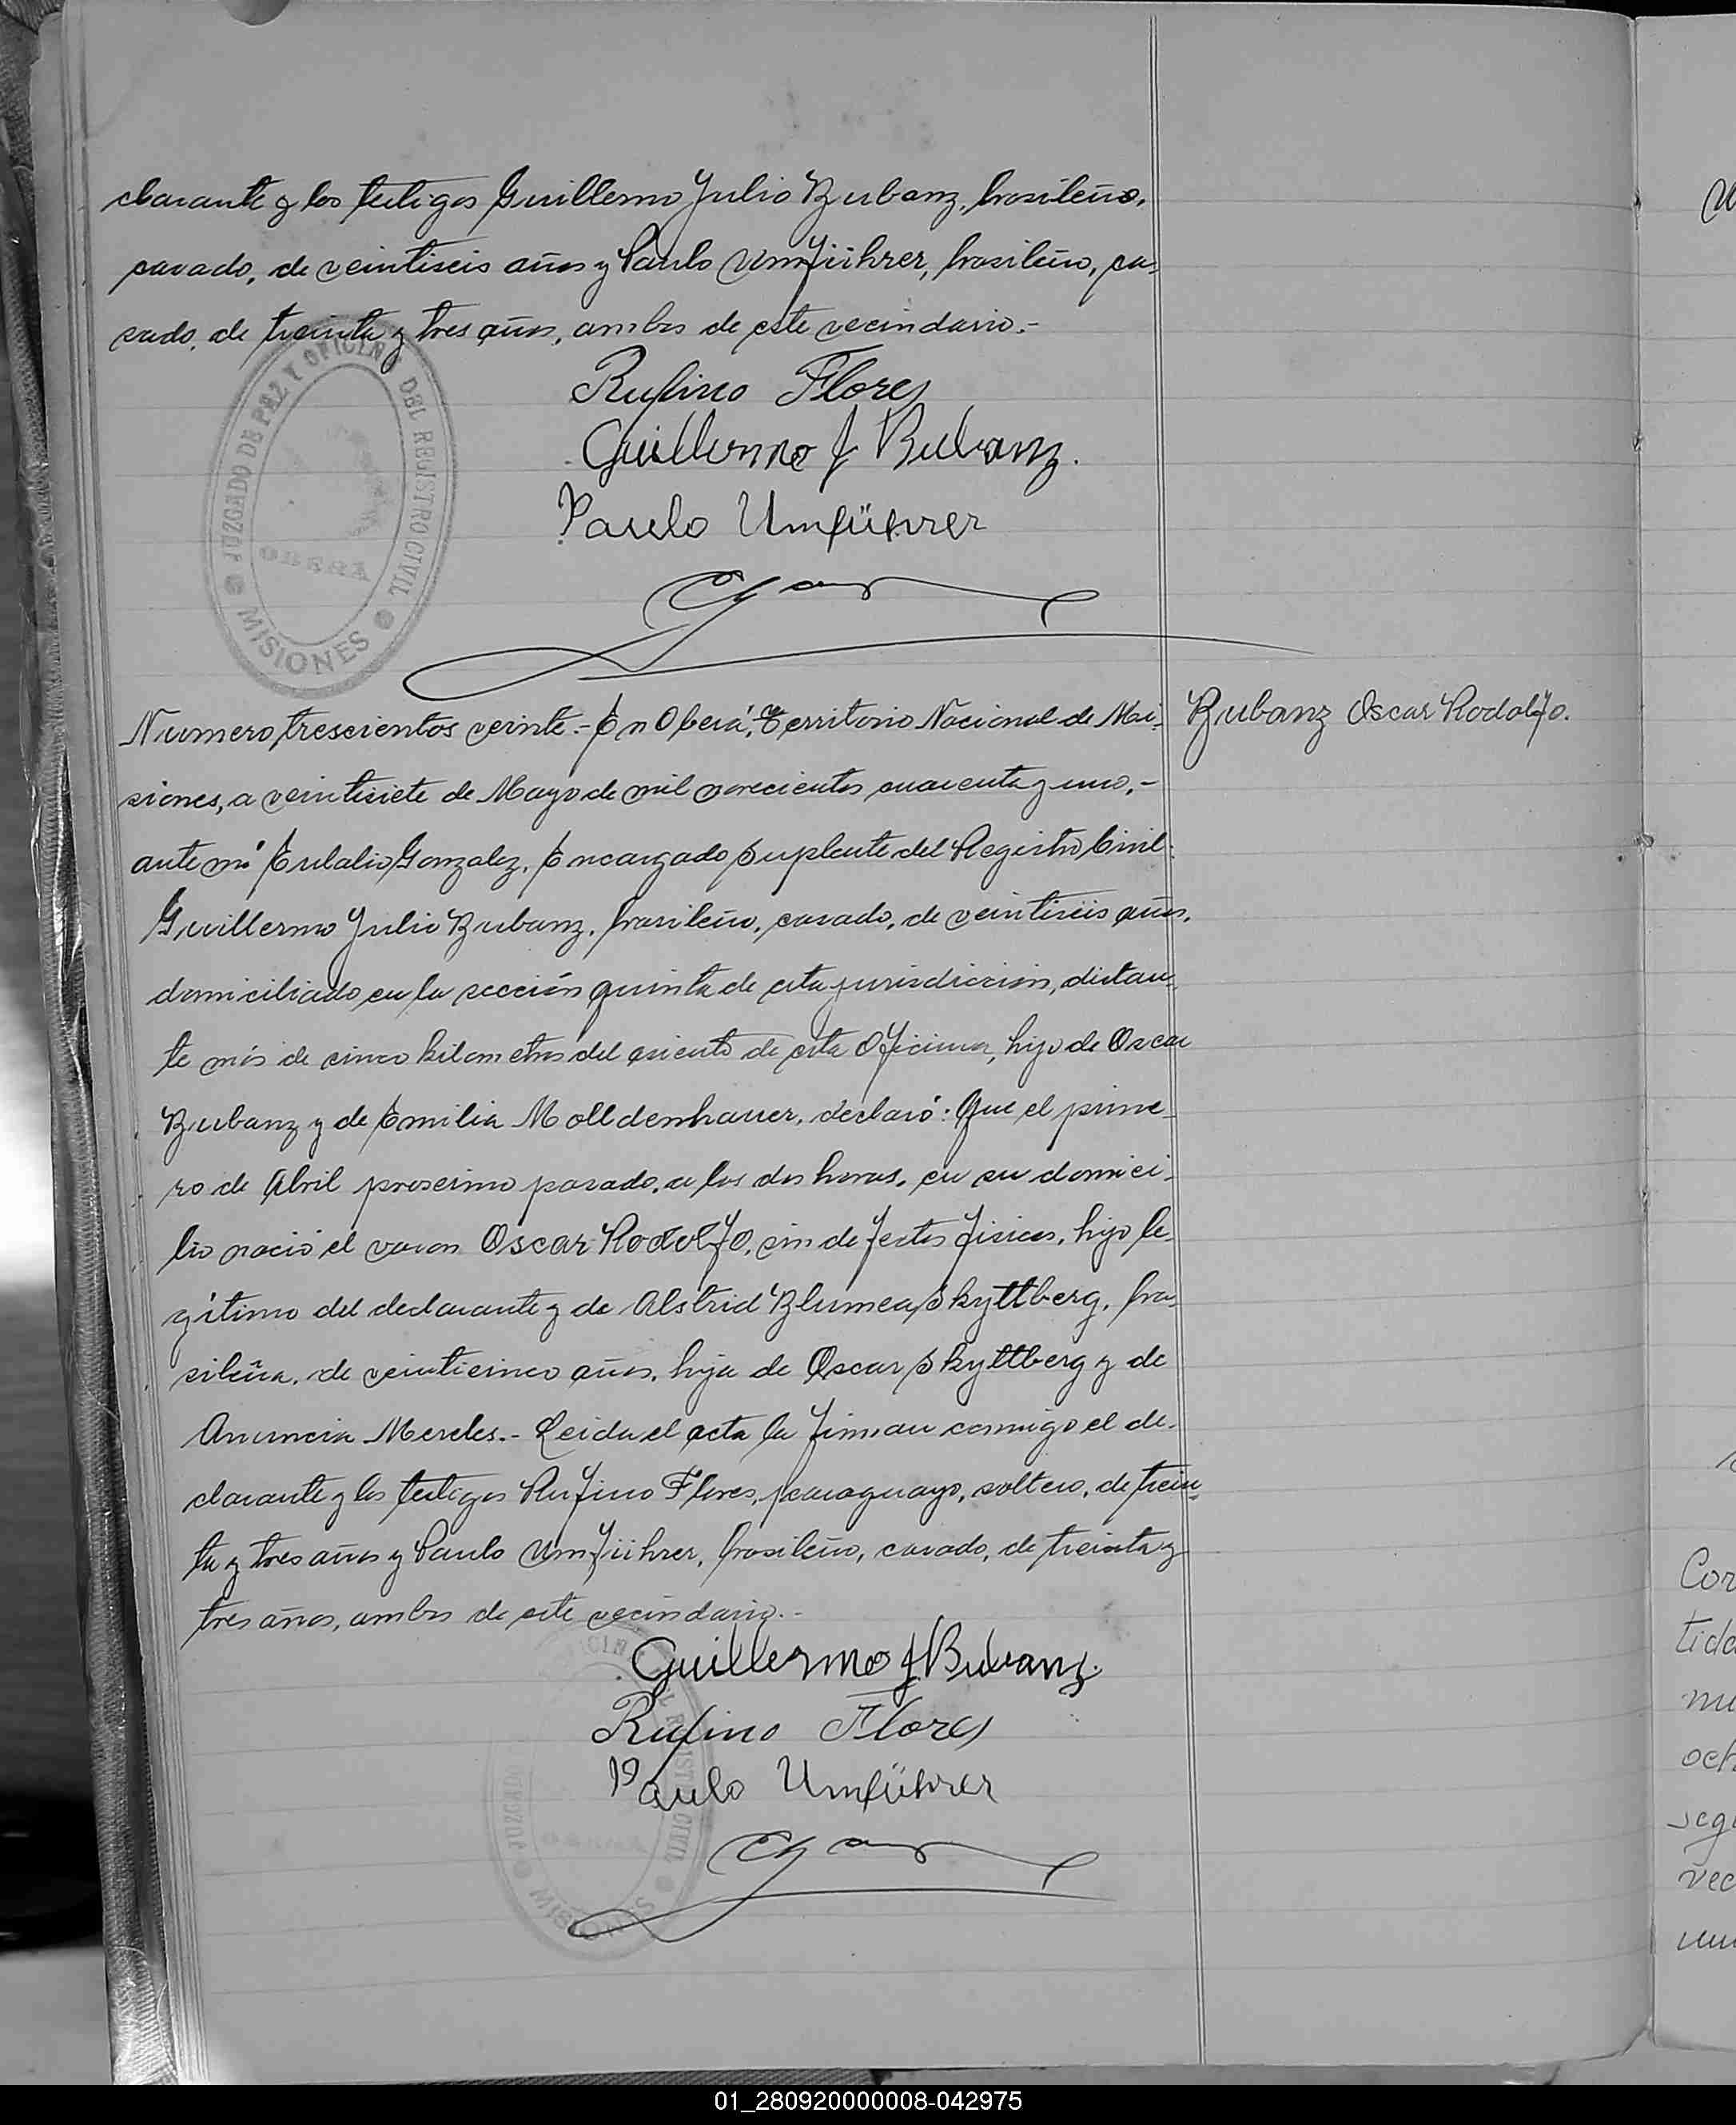 clarante y los testigos Guillermo Julio Bubanz, brasileño,
casado, de veintiseis años y Paulo Umführer, brasileño, ca-
sado, de treinta y tres años, ambos de este vecindario.-
Rufino Flores
Guillermo J Bubanz.
Paulo Umführer
JUZGADO DE PAZ Y OFICINA DEL REGISTRO CIVIL
OBERÁ
MISIONES
Numero trescientos veinte.- En Oberá, Territorio Nacional de Mi-
Bubanz Oscar Rodolfo.
siones, a veintisiete de Mayo de mil novecientos cuarenta y uno,-
ante mi Eulalio Gonzalez, Encargado Suplente del Registro Civil:
Guillermo Julio Bubanz, brasileño, casado, de veintiseis años,
domiciliado en la sección quinta de esta jurisdicción, distan-
te más de cinco kilometros del asiento de esta Oficina, hijo de Oscar
Bubanz y de Emilia Molldenhauer, declaró: Que el prime-
ro de Abril proscimo pasado, a las dos horas, en su domici-
lio nació el varon Oscar Rodolfo, sin defectos fisicos, hijo le-
gitimo del declarante y de Alstrid Blumea Skyttberg, bra-
sileña, de veinticinco años, hija de Oscar Skyttberg y de
Anuncia Mereles.- Leida el acta la firman conmigo el de-
clarante y los testigos Rufino Flores, paraguayo, soltero, de trein-
ta y tres años y Paulo Umführer, brasileño, casado, de treinta y
tres años, ambos de este vecindario.-
Guillermo J Bubanz.
Rufino Flores
Paulo Umführer
Cor
tida
mi
och
segu
vec
01_280920000008-042975